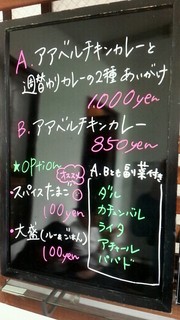 A. アアベルチキンカレーと
週替わりカレーの2種あいがけ
1,000yen
B. アアベルチキンカレー
850yen
★OPtion
オススメ
・スパイスたまご①
100yen
・大盛(ルー&ごはん)
100yen
A.Bとも副菜付き
ダル
カチュンバル
ライタ
アチャール
パパド